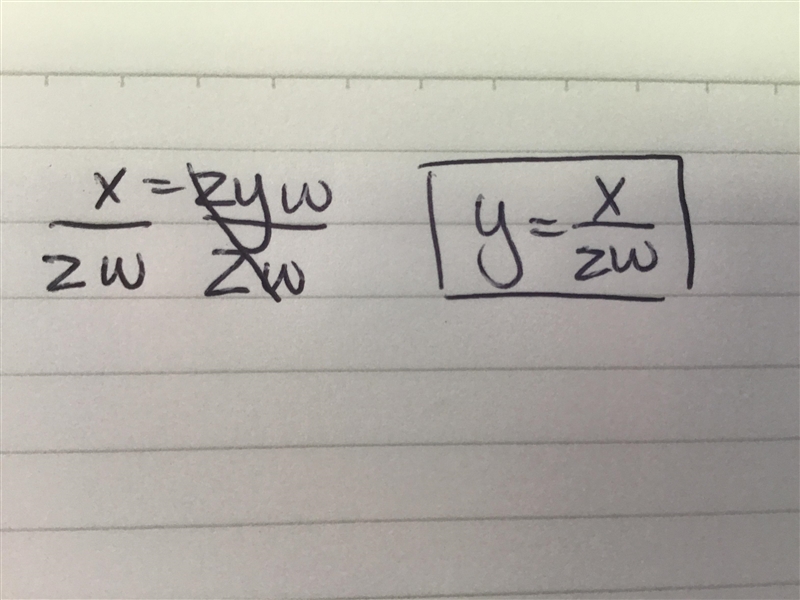 x = zyw
zw zw
y = x
zw